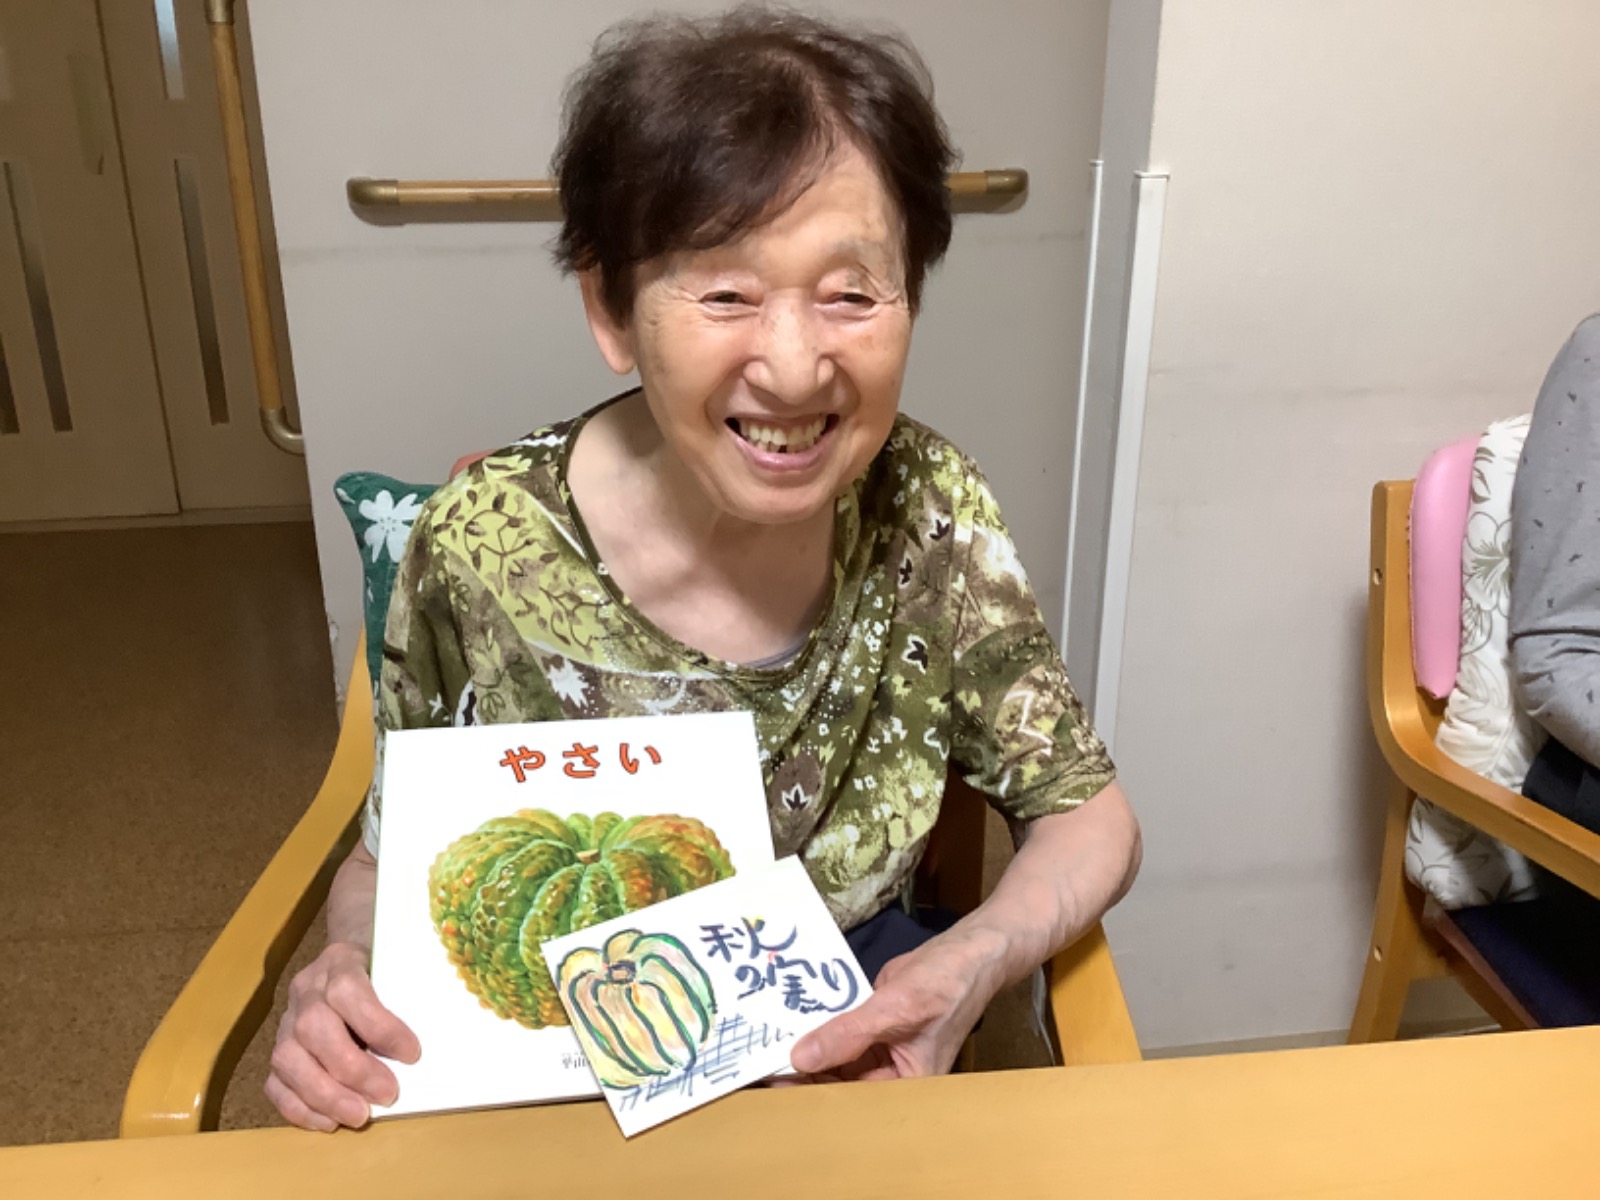 やさい
秋
の実り